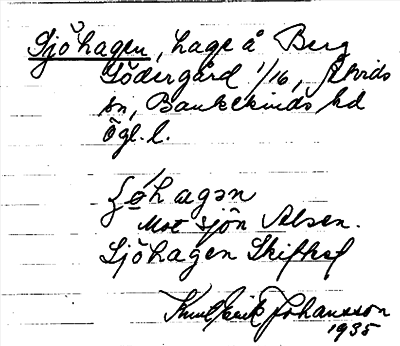 Sjöhagen, hage å Berg
Södergård 1/16, Åtvids
sn, Bankekinds hd
Ögl. l.
Mot sjön Alsen.
Sjöhagen Skifteskt
Knut Erik Johansson
1935